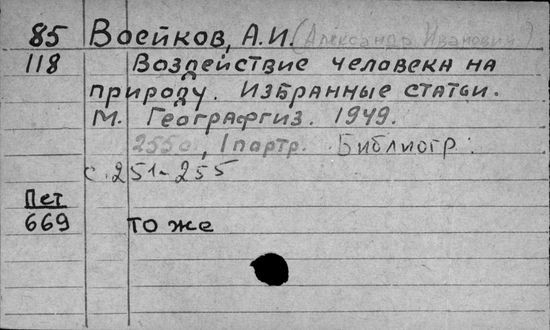 85 Воейков, А.И. (Александр Иванович)
118 Воздействие человека на
природу. Избранные статьи.
М. Географгиз. 1949.
255с., 1 портр. Библиогр:
с. 251-255
Пет
669 то же